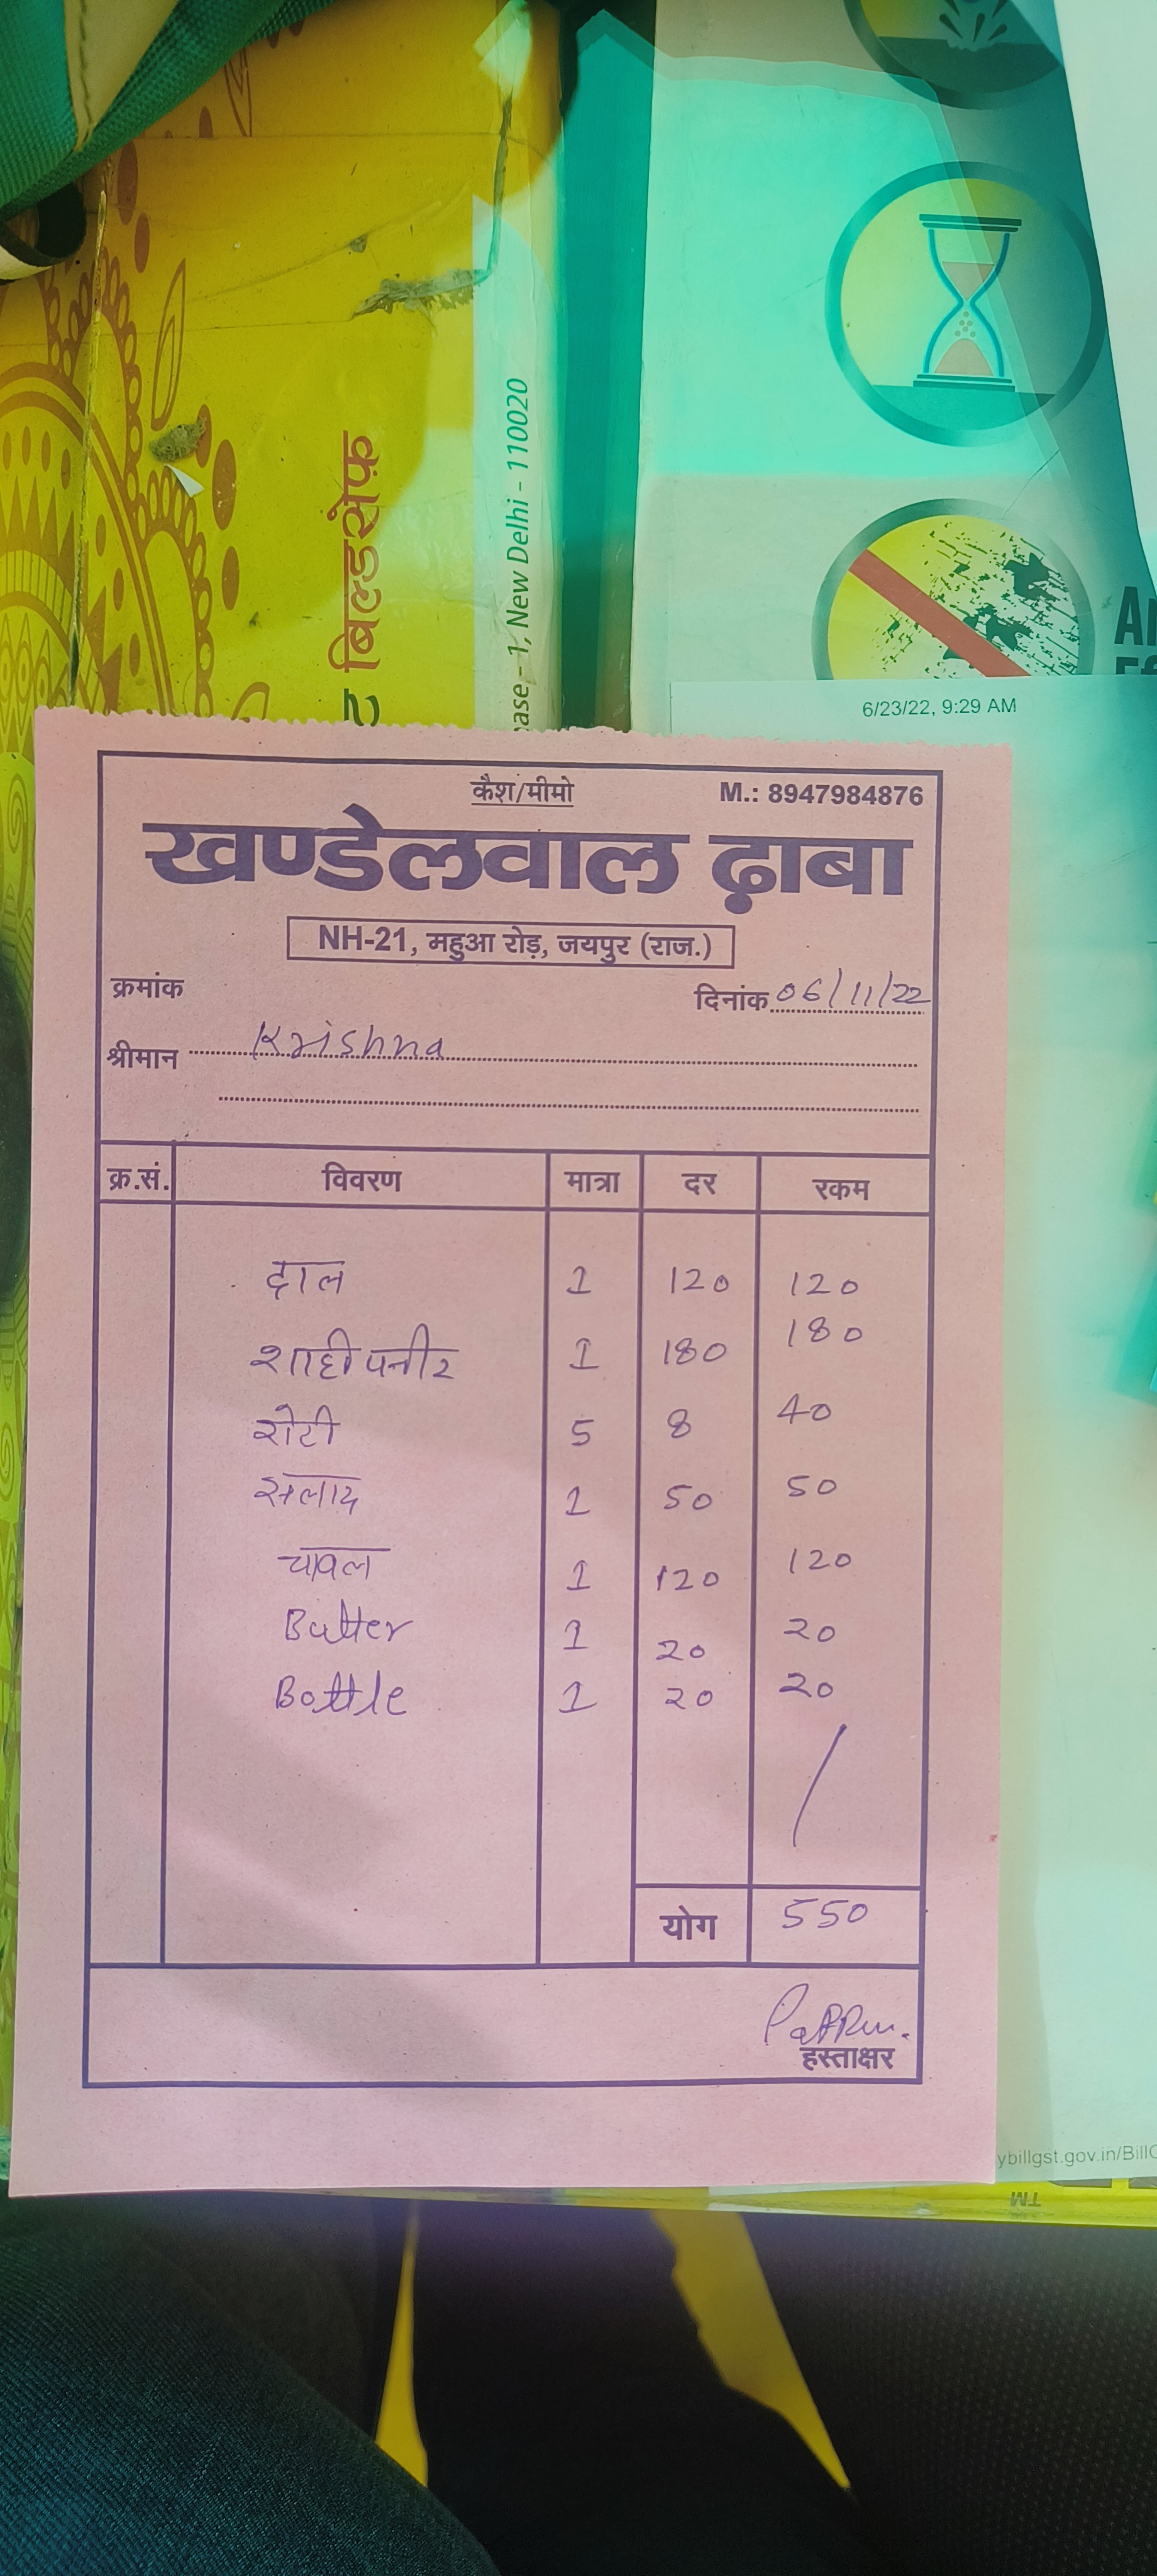 बिल्डसेफ़
ase - 1, New Delhi - 110020
6/23/22, 9:29 AM
कैश/मीमो M.: 8947984876
खण्डेलवाल ढ़ाबा
NH-21, महुआ रोड़, जयपुर (राज.)
क्रमांक दिनांक 06/11/22
श्रीमान Krishna
क्र.सं. विवरण मात्रा दर रकम
दाल 1 120 120
शाही पनीर 1 180 180
रोटी 5 8 40
सलाद 1 50 50
चावल 1 120 120
Butter 1 20 20
Bottle 1 20 20
योग 550
हस्ताक्षर
ybillgst.gov.in/Bill
TM